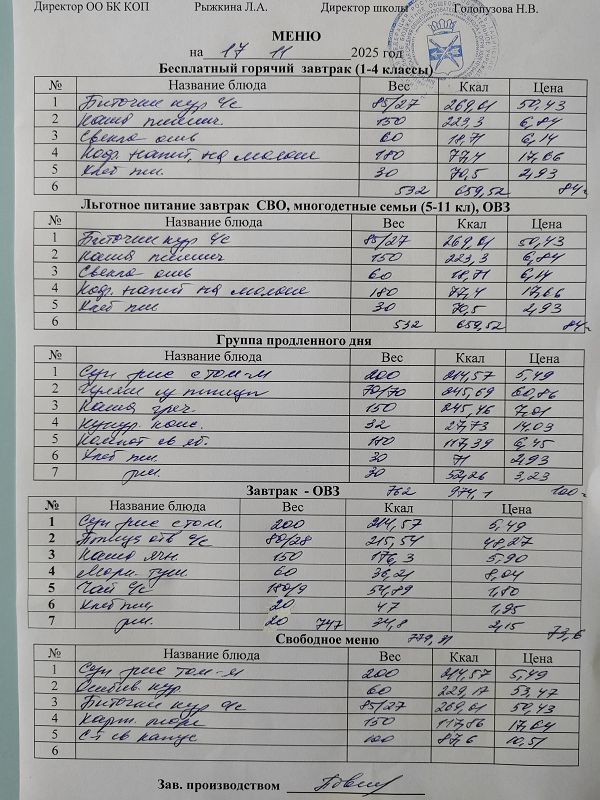 Директор ОО БК КОП Рыжкина Л.А. Директор школы Голопузова Н.В.
МЕНЮ
на 17 11 2025 год
Бесплатный горячий завтрак (1-4 классы)
№ Название блюда Вес Ккал Цена
1 Биточки кур с/с 85/27 269,01 50,43
2 Каша пшенич. 150 223,3 6,84
3 Свекла отв 60 18,71 6,14
4 Коф. напит. на молоке 180 77,4 17,66
5 Хлеб пш. 30 70,5 2,93
6 532 659,52 84-
Льготное питание завтрак СВО, многодетные семьи (5-11 кл), ОВЗ
№ Название блюда Вес Ккал Цена
1 Биточки кур с/с 85/27 269,01 50,43
2 Каша пшенич 150 223,3 6,84
3 Свекла отв 60 18,71 6,14
4 Коф. напит на молоке 180 77,4 17,66
5 Хлеб пш 30 70,5 2,93
6 532 659,52 84-
Группа продленного дня
№ Название блюда Вес Ккал Цена
1 Суп рис с том-м 200 214,57 5,49
2 Гуляш из птицы 70/70 245,69 60,86
3 Каша греч. 150 245,46 7,01
4 Кукур. конс. 32 27,73 14,03
5 Компот св яб. 180 117,39 6,45
6 Хлеб пш. 30 71 2,93
7 рж. 30 52,26 3,23
Завтрак - ОВЗ 762 974,1 100-
№ Название блюда Вес Ккал Цена
1 Суп рис с том. 200 214,57 5,49
2 Птица отв с/с 80/28 215,54 48,27
3 Каша ячн. 150 176,3 5,90
4 Морк. туш. 60 36,21 8,04
5 Чай с/с 180/9 54,89 1,80
6 Хлеб пш. 20 47 1,95
7 рж. 20 747 34,8 2,15 73,6
Свободное меню 779,31
№ Название блюда Вес Ккал Цена
1 Суп рис том-м 200 214,57 5,49
2 кур 60 229,17 53,47
3 Биточки кур с/с 85/27 269,01 50,43
4 Карт. пюре 150 117,86 17,04
5 С-т св капус 100 87,6 10,51
6
Зав. производством